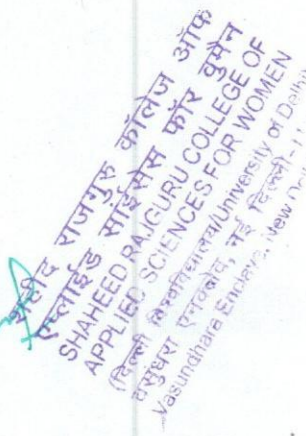 शहीद राजगुरु कॉलेज ऑफ
एप्लाईड साईंसेस फॉर वुमैन
SHAHEED RAJGURU COLLEGE OF
APPLIED SCIENCES FOR WOMEN
(दिल्ली विश्वविद्यालय/University of Delhi)
वसुंधरा एनक्लेव, नई दिल्ली-1
Vasundhara Enclave, New Del